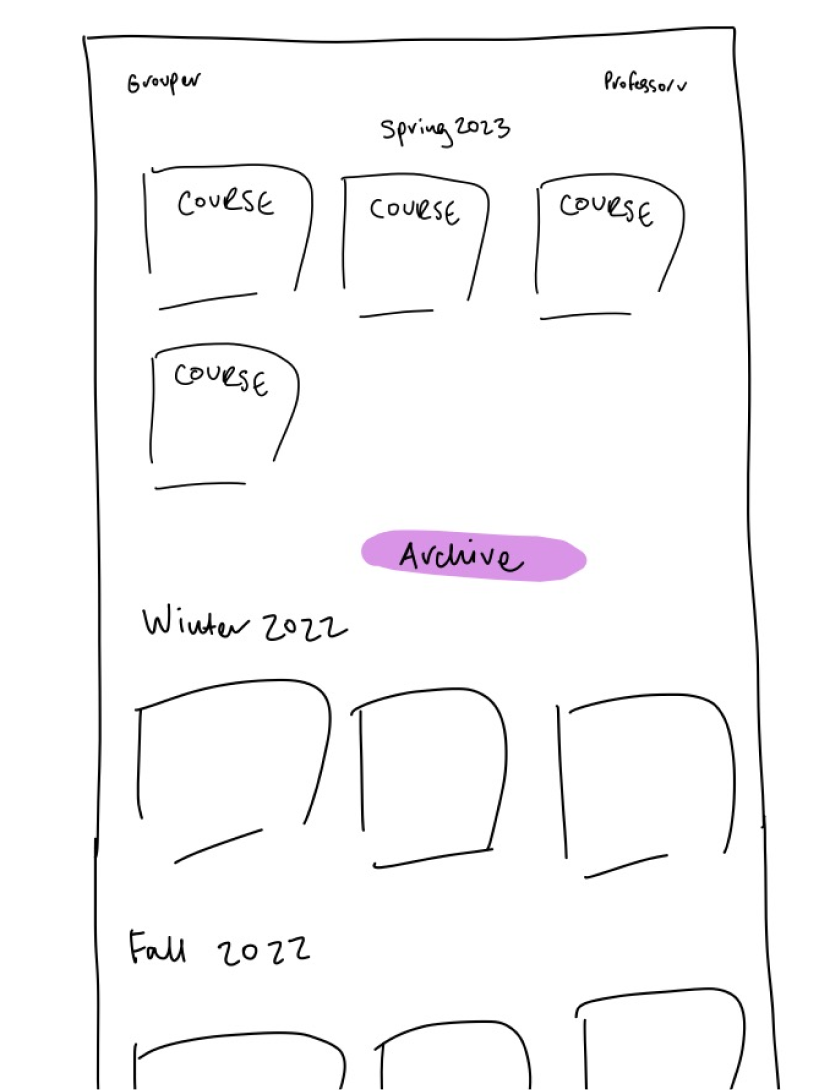 Grouper
Professor v
Spring 2023
COURSE
COURSE
COURSE
COURSE
Archive
Winter 2022
Fall 2022